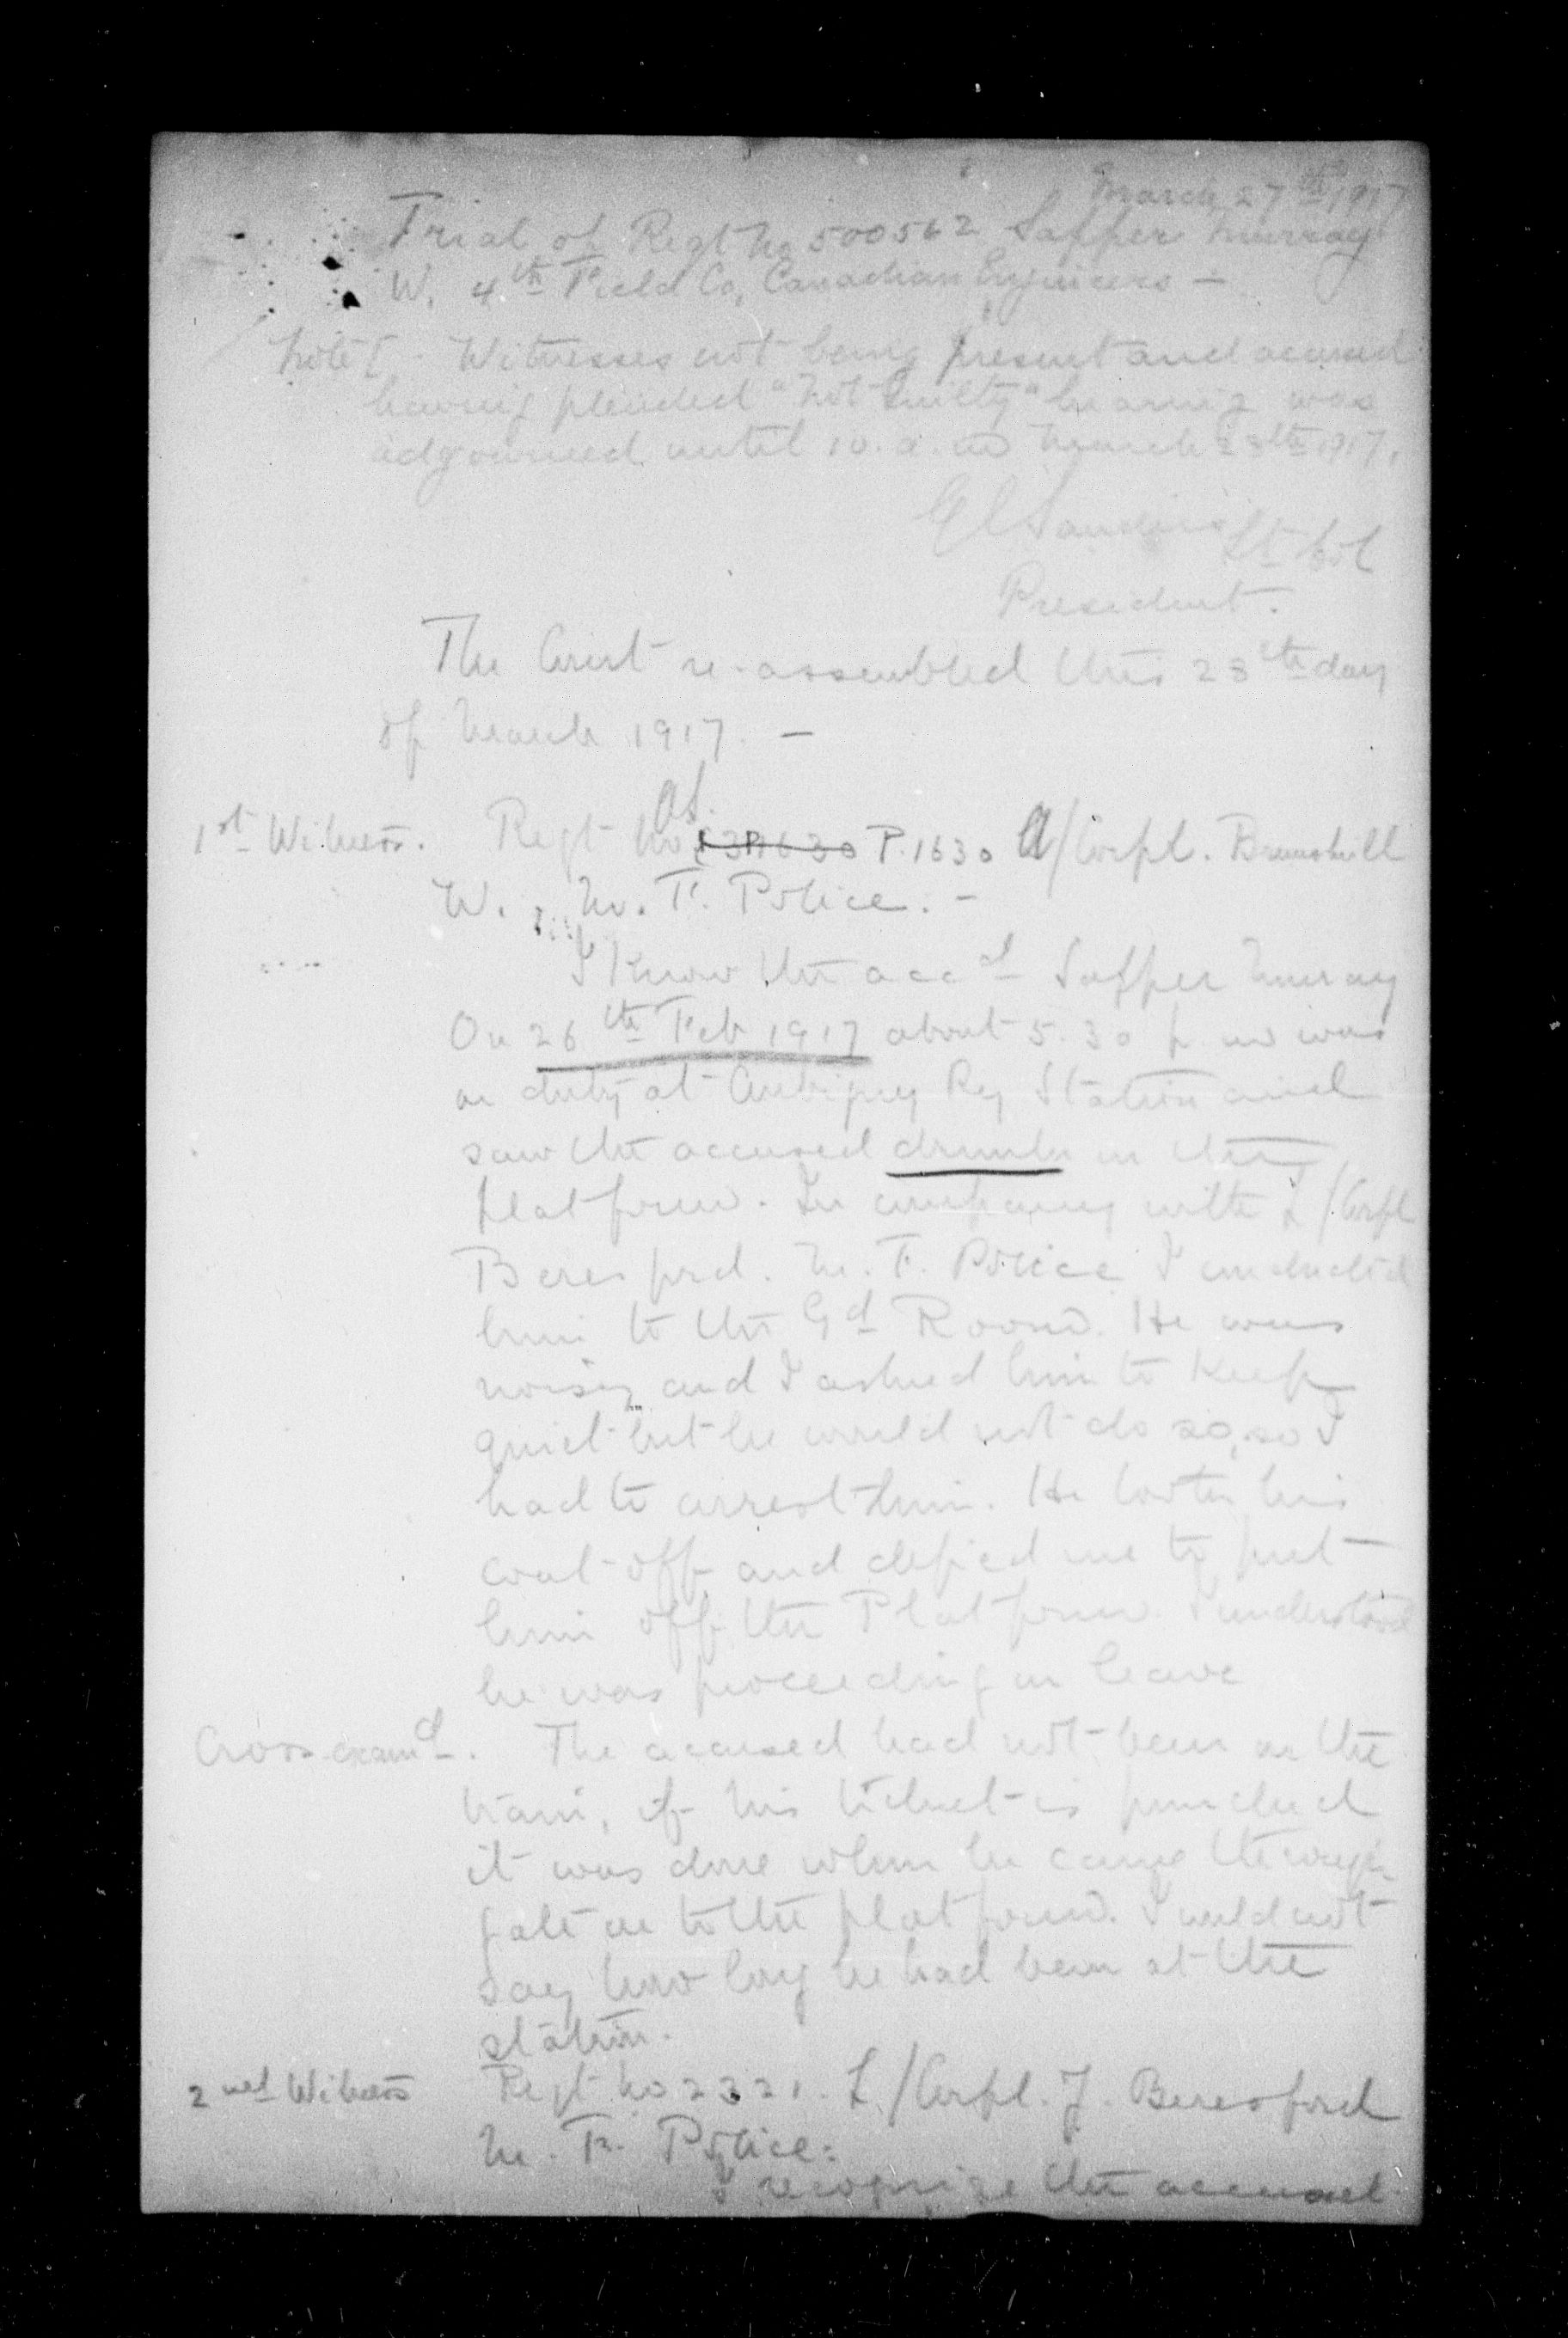 March 27th 1917
Trial of Regt No 500562 Sapper Murray
W. 4th Field Co, Canadian Engineers —
Note I - Witnesses not being present and accused
having pleaded "Not Guilty" hearing was
adjourned until 10. a.m March 28th 1917.
Lt Col
President.
The Court re-assembled this 28th day
of March 1917. —
1st Witness. Regt No P.1630 A/Corpl. Bramshill
W. M. F. Police. -
I know the accd Sapper Murray
On 26th Feb 1917 about 5.30 p.m was
on duty at Aubigny Ry Station and
saw the accused drunk on the
platform. In company with L/Corpl
Beresford. M. F. Police I conducted
him to the Gd Room. He was
noisy and I asked him to keep
quiet but he would not do so, so I
had to arrest him. He took his
coat off and defied me to put
him off the Platform. I understood
he was proceeding on leave
Cross-examd. The accused had not been on the
train, if his ticket is punched
it was done when he came through
gate on to the platform. I could not
say how long he had been at the
station.
2nd Witness Regt No 2321. L/Corpl. J. Beresford
M. F. Police.
I recognize the accused